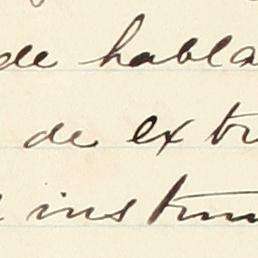 de habla
de extr
instru